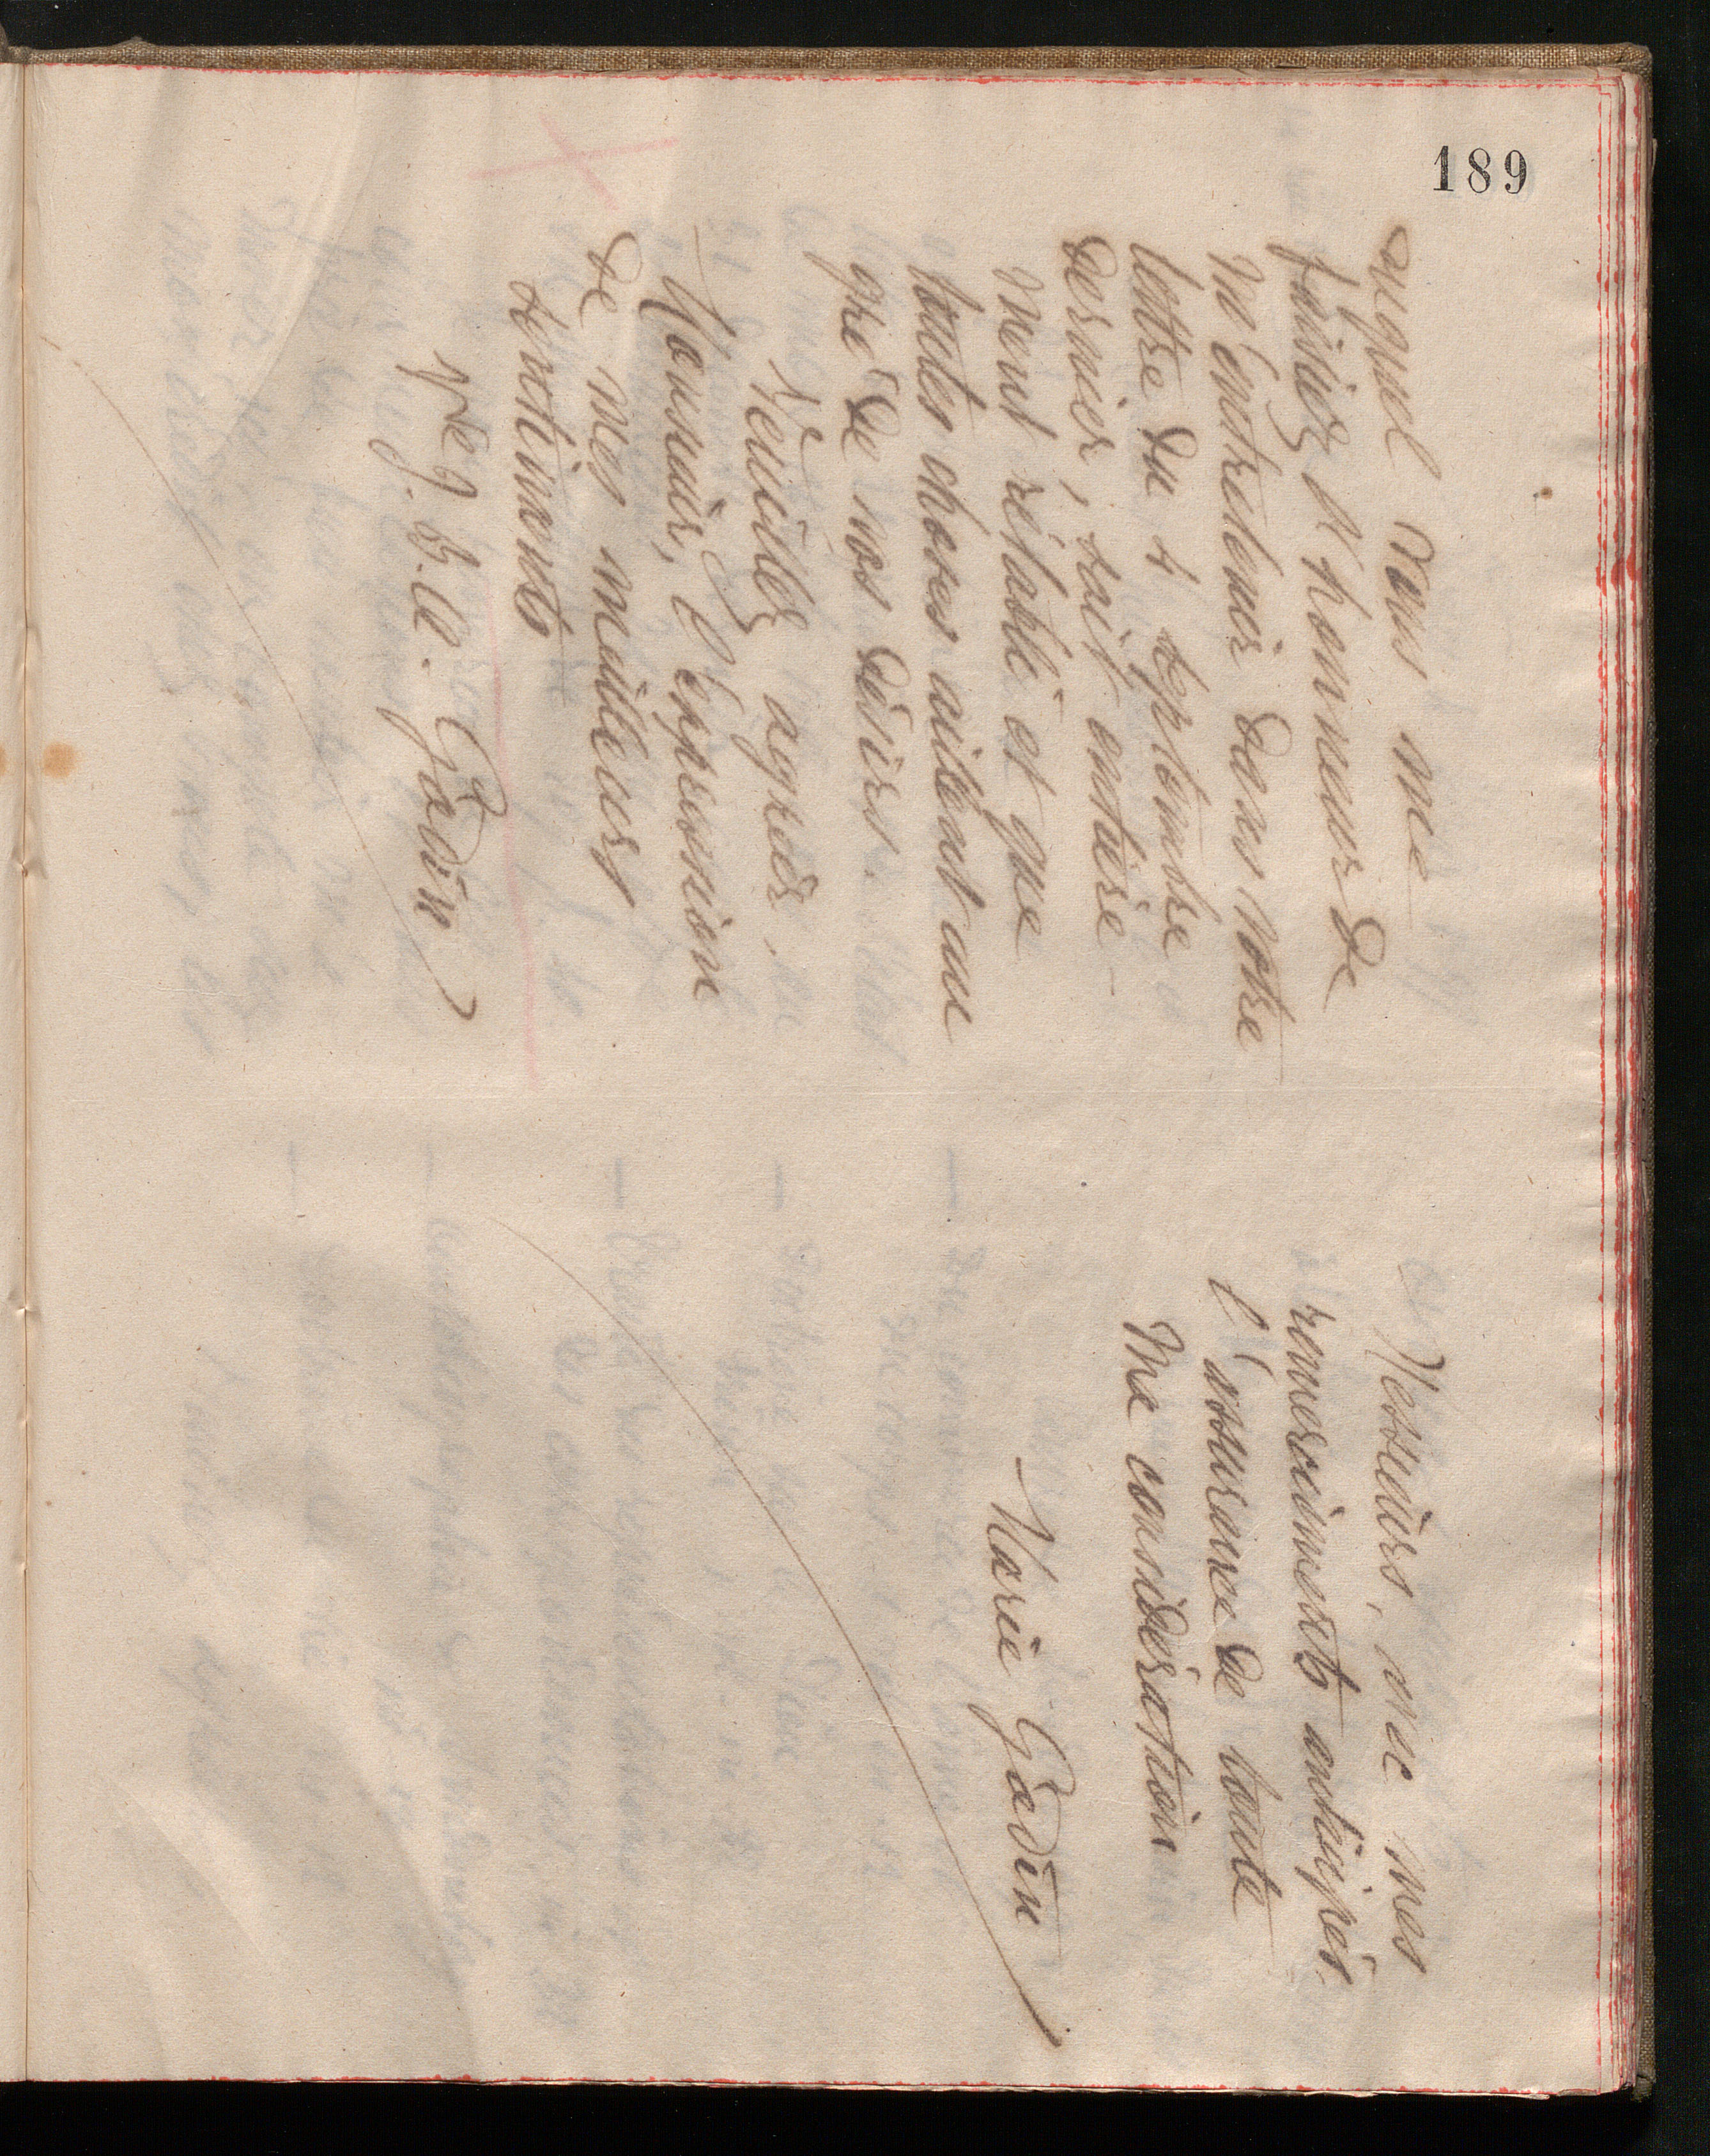 189
auquel vous me
faisiez l'honneur de
m'entretenir dans votre
lettre du 4 septembre
dernier, soit entière-
ment rétablie et que
toutes choses aillent au
gré de vos désirs.
Veuillez agréer,
Monsieur, l'expression
de mes meilleurs
sentiments
Vve J. B. A. Godin
Messieurs, avec mes
remerciements anticipés.
l'assurance de toute
ma considération
Marie Godin